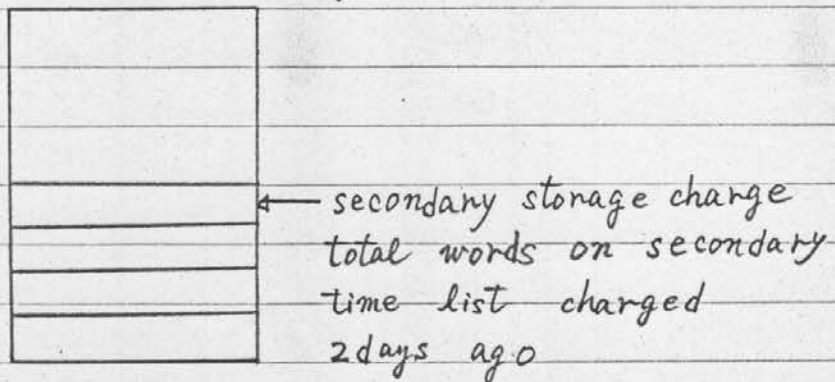 secondary storage charge
total words on secondary
time list charged
2days ago